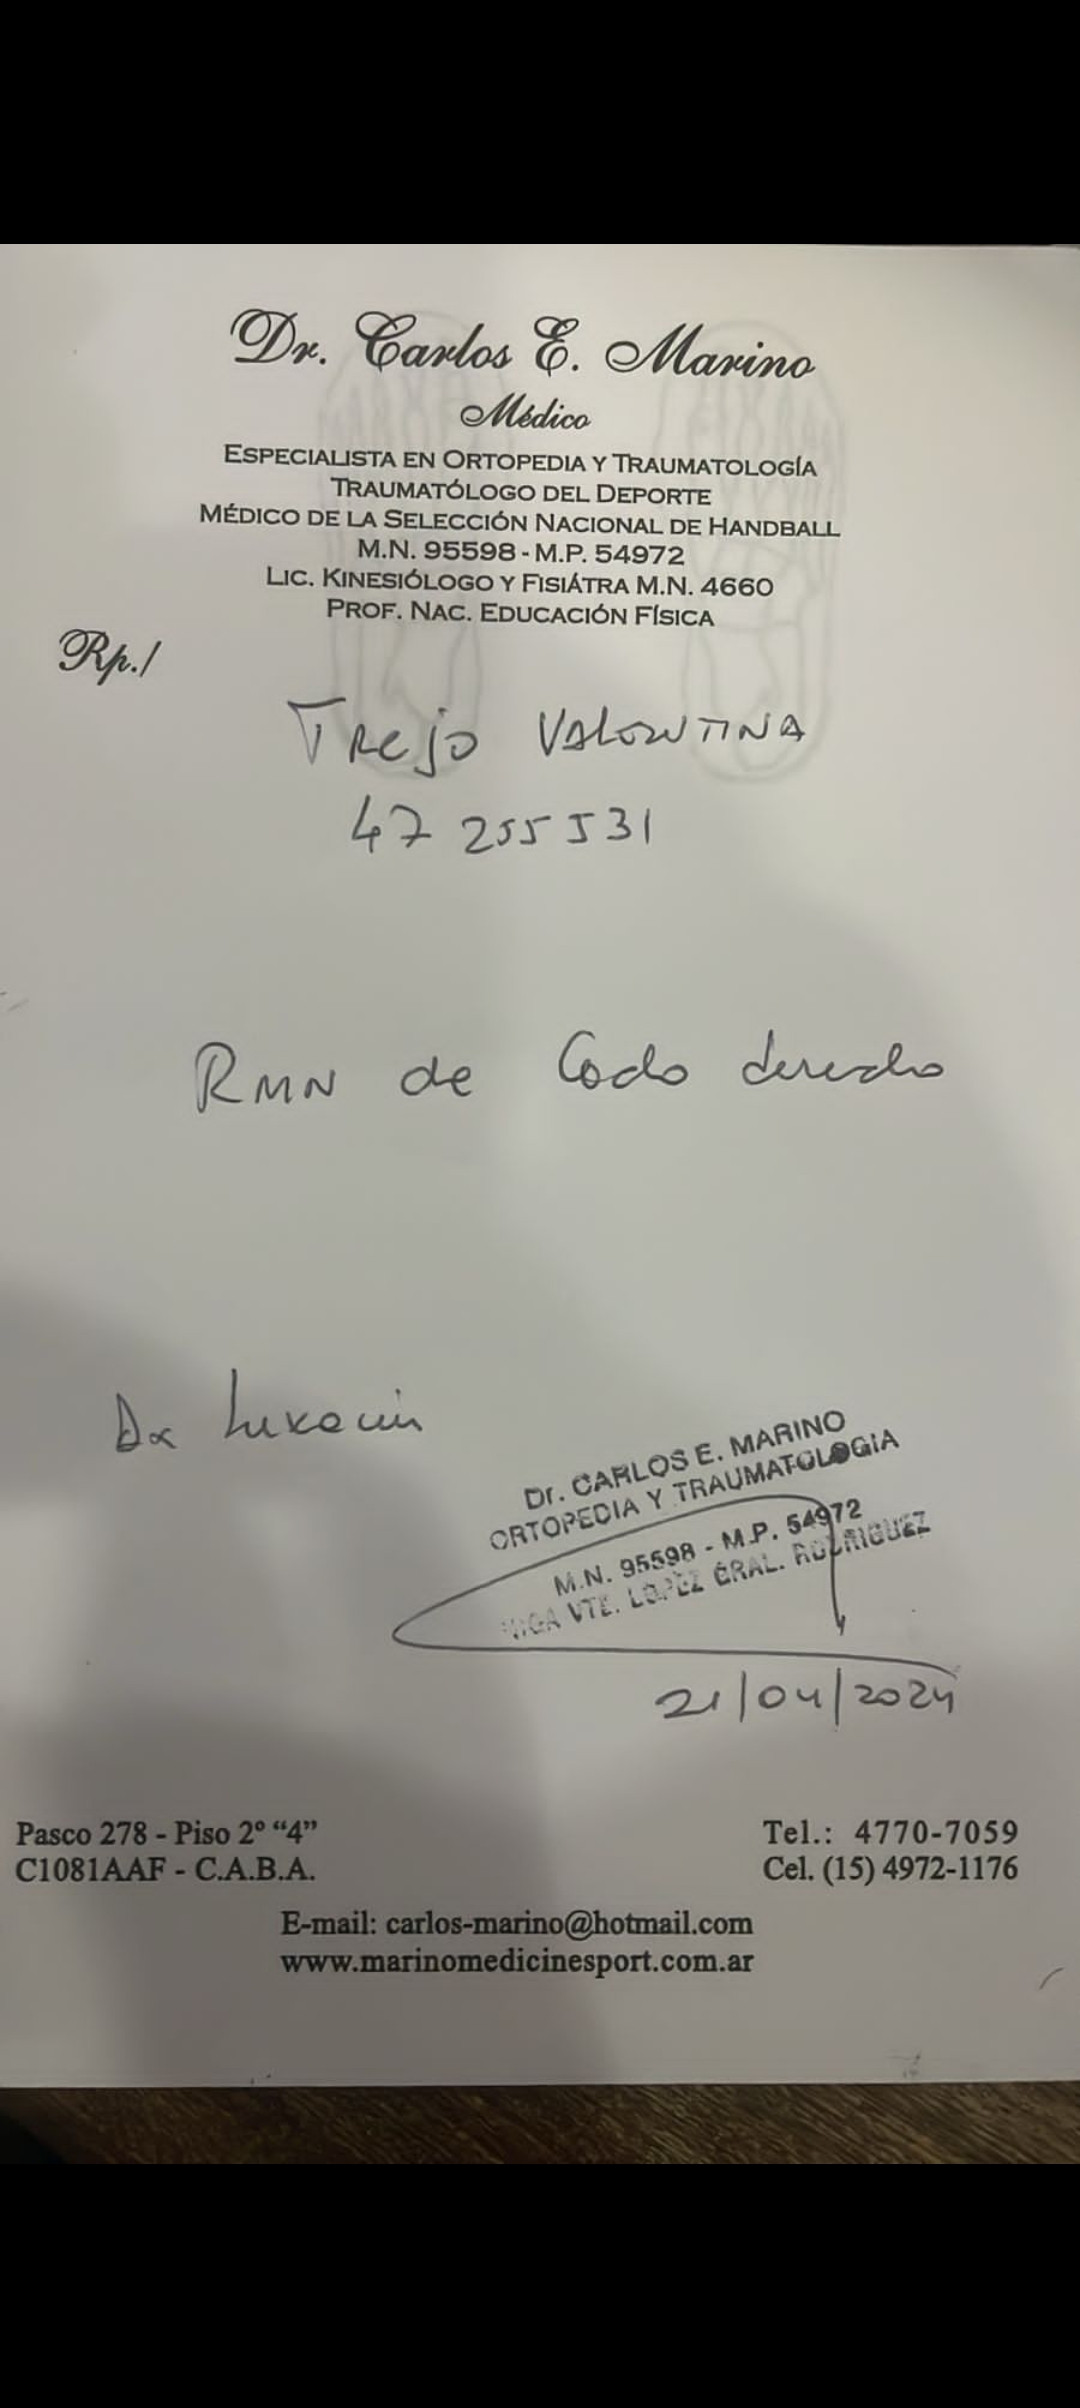 Dr. Carlos E. Marino
Médico
ESPECIALISTA EN ORTOPEDIA Y TRAUMATOLOGÍA
TRAUMATÓLOGO DEL DEPORTE
MÉDICO DE LA SELECCIÓN NACIONAL DE HANDBALL
M.N. 95598 - M.P. 54972
LIC. KINESIÓLOGO Y FISIÁTRA M.N. 4660
PROF. NAC. EDUCACIÓN FÍSICA
Rp./
Trejo VALENTINA
47 255 531
RMN de Codo derecho
Dx Luxacion
Dr. CARLOS E. MARINO
ORTOPEDIA Y TRAUMATOLOGIA
M.N. 95598 - M.P. 54972
VTE. LOPEZ GRAL. RODRIGUEZ
21/04/2024
Pasco 278 - Piso 2º “4”
C1081AAF - C.A.B.A.
Tel.: 4770-7059
Cel. (15) 4972-1176
E-mail: carlos-marino@hotmail.com
www.marinomedicinesport.com.ar